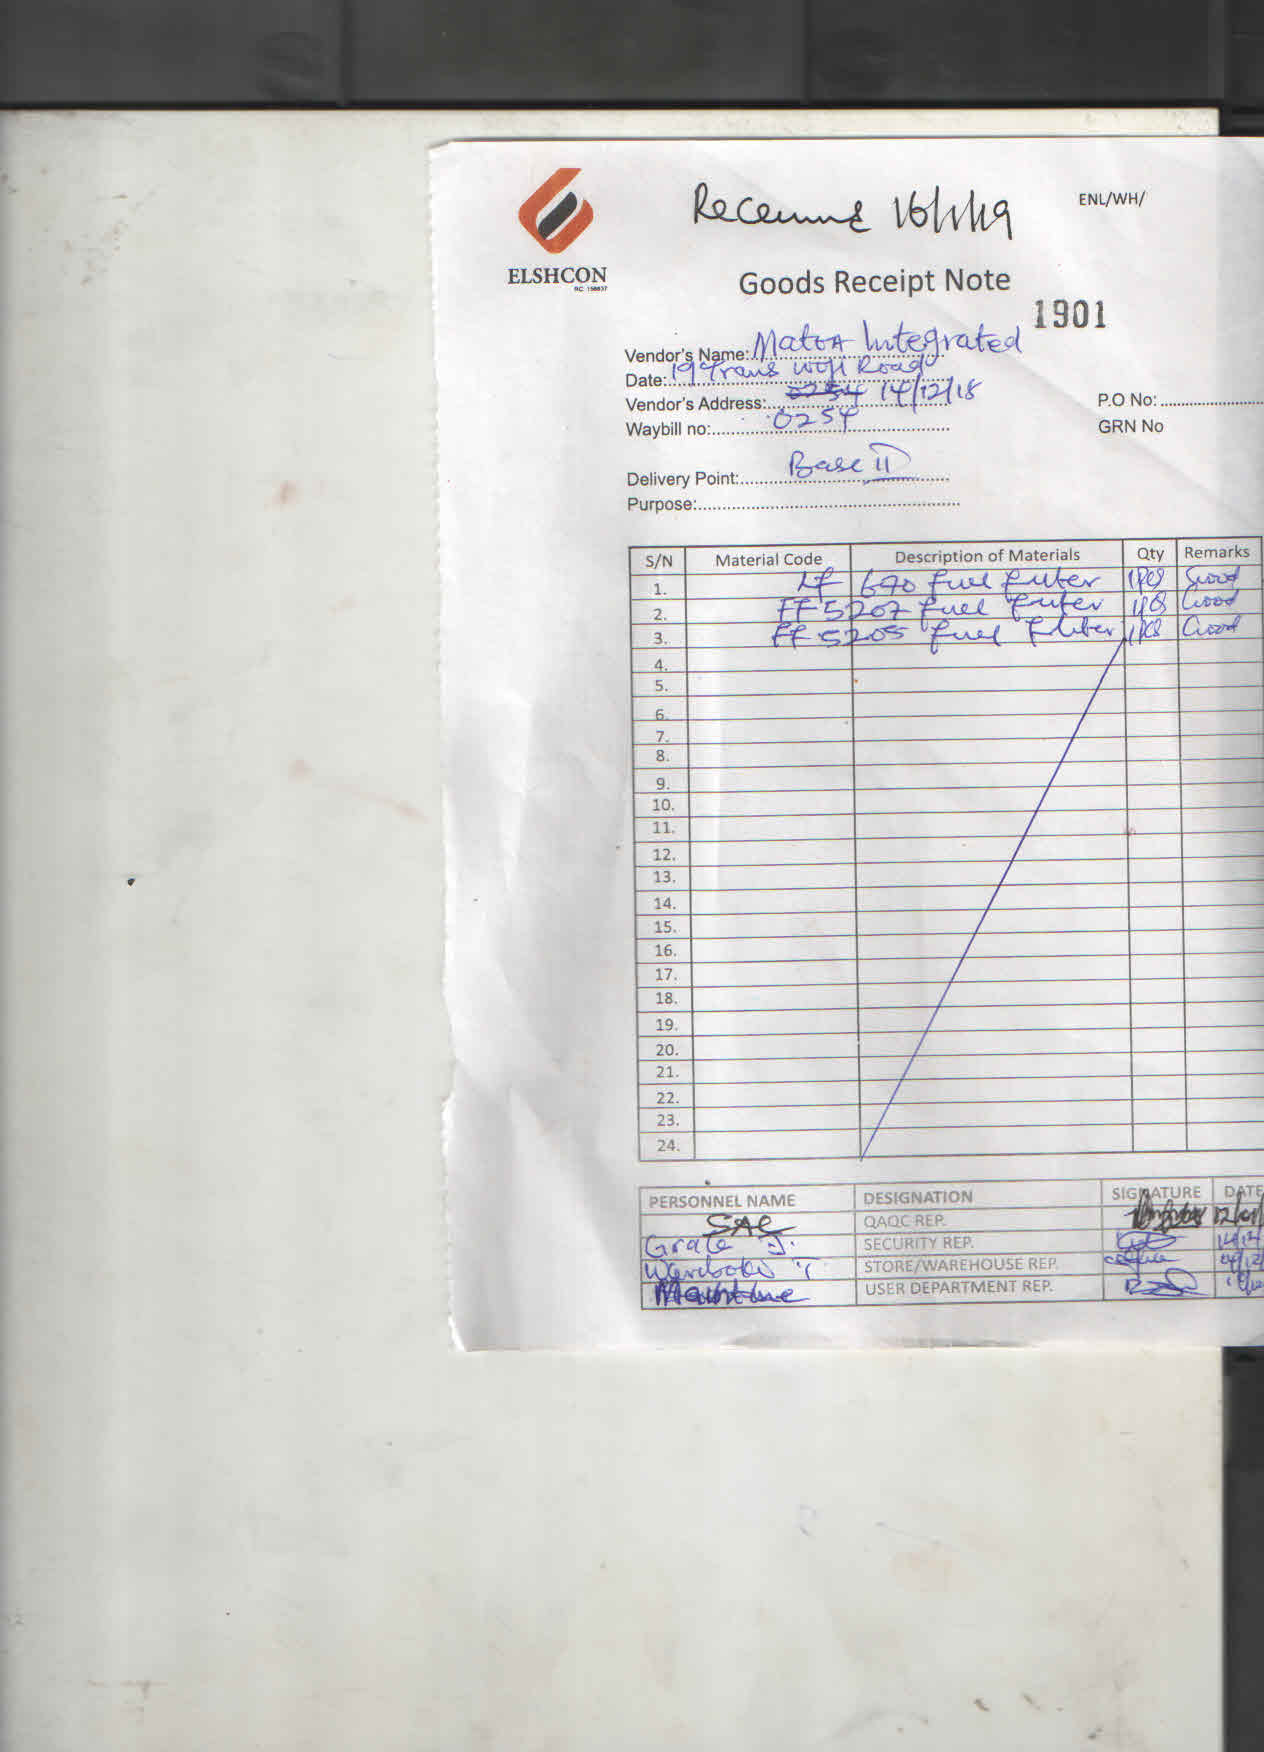 ELSHCON
RC 156837
16/1/19
ENL/WH/
Goods Receipt Note
1901
Vendor's Name: Matoa Integrated
Date: 19 Trans Woji Road
Vendor's Address: 0254 14/12/18
P.O No:
Waybill no: 0254
GRN No
Delivery Point: Base II
Purpose:
S/N Material Code Description of Materials Qty Remarks
1. LF 670 fuel filter 1pcs Good
2. FF 5207 fuel filter 1pcs Good
3. FF 5205 fuel filter 1pcs Good
4.
5.
6.
7.
8.
9.
10.
11.
12.
13.
14.
15.
16.
17.
18.
19.
20.
21.
22.
23.
24.
PERSONNEL NAME DESIGNATION SIGNATURE DATE
QAQC REP.
Grace J. SECURITY REP.
STORE/WAREHOUSE REP.
USER DEPARTMENT REP.